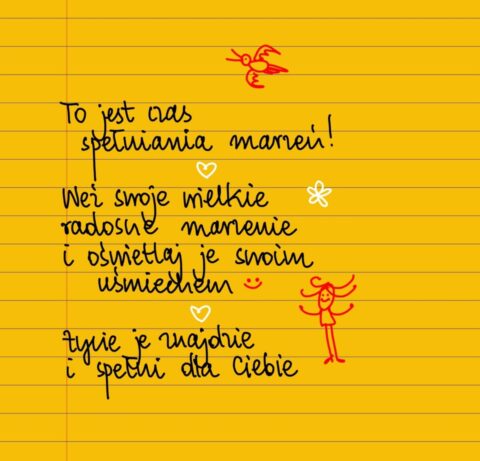 To jest czas
spełniania marzeń!
Weź swoje wielkie
radosne marzenie
i oświetlaj je swoim
uśmiechem
życie je znajdzie
i spełni dla Ciebie